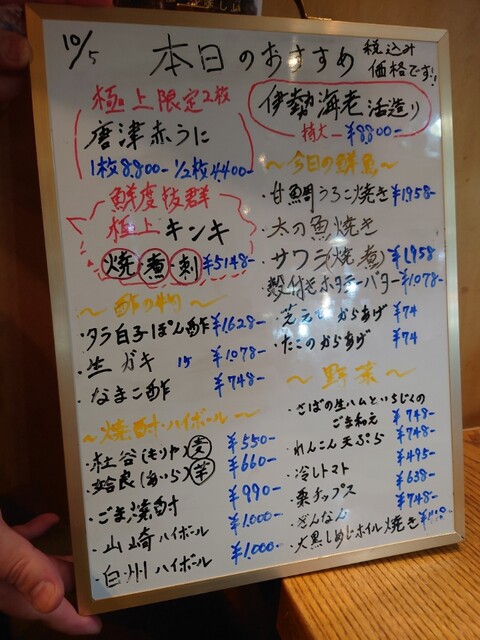 10/5
本日のおすすめ
税込み
価格です!!
極上限定2枚
唐津赤うに
1枚8,800- 1/2枚4,400-
鮮度抜群
極上 キンキ
焼 煮 刺 ¥5148-
〜酢の物〜
・タラ白子ぽん酢 ¥1628-
・生ガキ 15 ¥1078-
・なまこ酢 ¥748-
〜焼酎・ハイボール〜
・杜谷(もりや) 麦 ¥550-
姶良(あいら) 芋 ¥660-
・ごま焼酎 ¥990-
・山崎ハイボール ¥1,000-
・白州ハイボール ¥1,000-
伊勢海老 活造り
特大- ¥8,800-
〜今日の鮮魚〜
・甘鯛うろこ焼き ¥1958-
・太刀魚焼き
・サワラ(焼、煮) ¥1958
・殻付きホタテバター ¥1078-
・芝えびからあげ ¥74
・たこのからあげ ¥74
〜野菜〜
・さばの生ハムといちじくの
ごま和え ¥748-
・れんこん天ぷら ¥748-
・冷しトマト ¥495-
・栗チップス ¥638-
・ぎんなん ¥748-
・大黒しめじホイル焼き